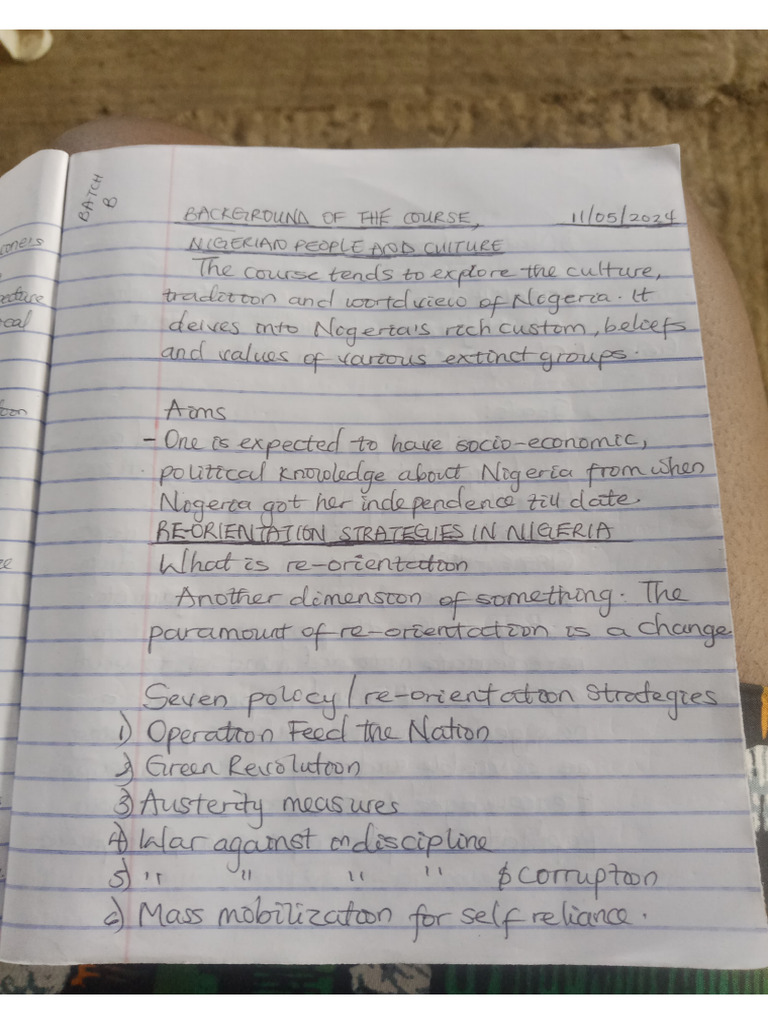 BATCH
B
BACKGROUND OF THE COURSE, 11/05/2024
NIGERIAN PEOPLE AND CULTURE
The course tends to explore the culture,
tradition and world view of Nigeria. It
delves into Nigeria's rich custom, beliefs
and values of various extinct groups.
Aims
- One is expected to have socio-economic,
political knowledge about Nigeria from when
Nigeria got her independence till date.
RE-ORIENTATION STRATEGIES IN NIGERIA
What is re-orientation
Another dimension of something. The
paramount of re-orientation is a change
Seven policy/re-orientation strategies
1) Operation Feed the Nation
2) Green Revolution
3) Austerity measures
4) War against indiscipline
5) " " " " & corruption
6) Mass mobilization for self reliance.